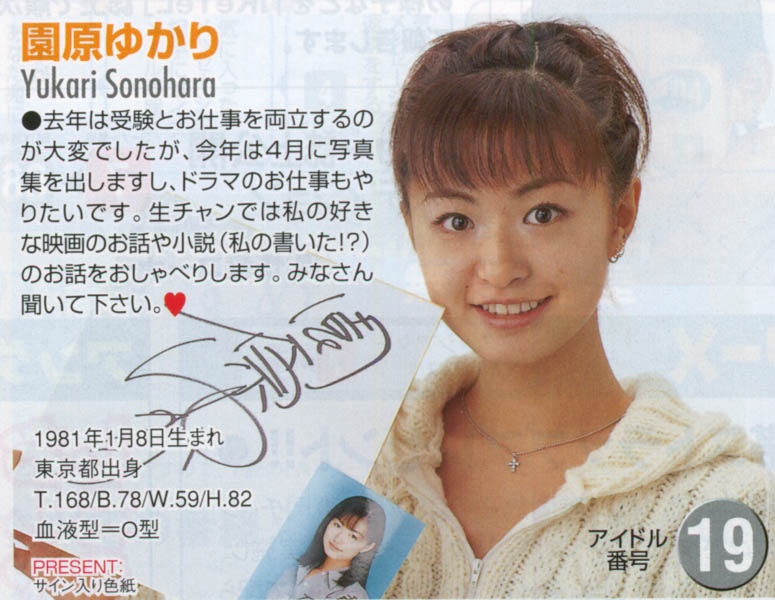 園原ゆかり
Yukari Sonohara
●去年は受験とお仕事を両立するの
が大変でしたが、今年は4月に写真
集を出しますし、ドラマのお仕事もや
りたいです。生チャンでは私の好き
な映画のお話や小説(私の書いた!?)
のお話をおしゃべりします。みなさん
聞いて下さい。♥
1981年1月8日生まれ
東京都出身
T.168/B.78/W.59/H.82
血液型=O型
PRESENT:
サイン入り色紙
アイドル
番号
19